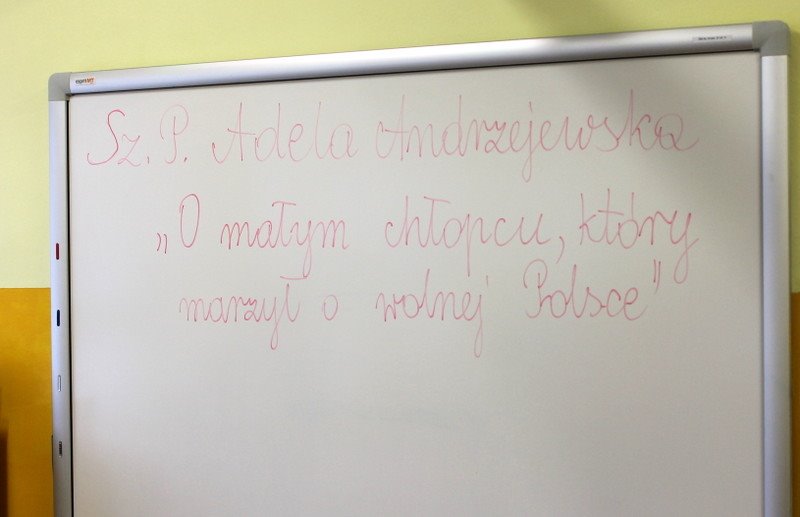 Sz. P. Adela Andrzejewska
„O małym chłopcu, który
marzył o wolnej Polsce"